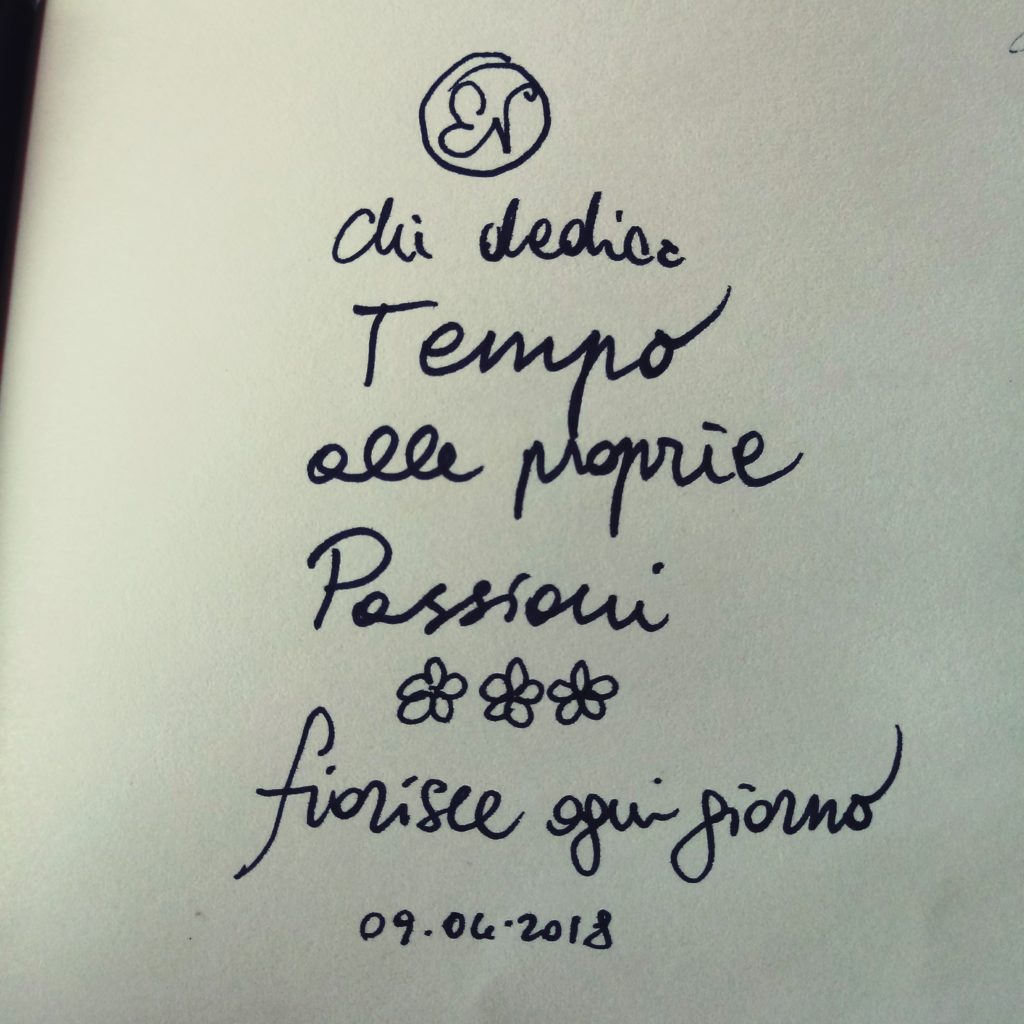 EN
Chi dedica
Tempo
alle proprie
Passioni
fiorisce ogni giorno
09.04.2018